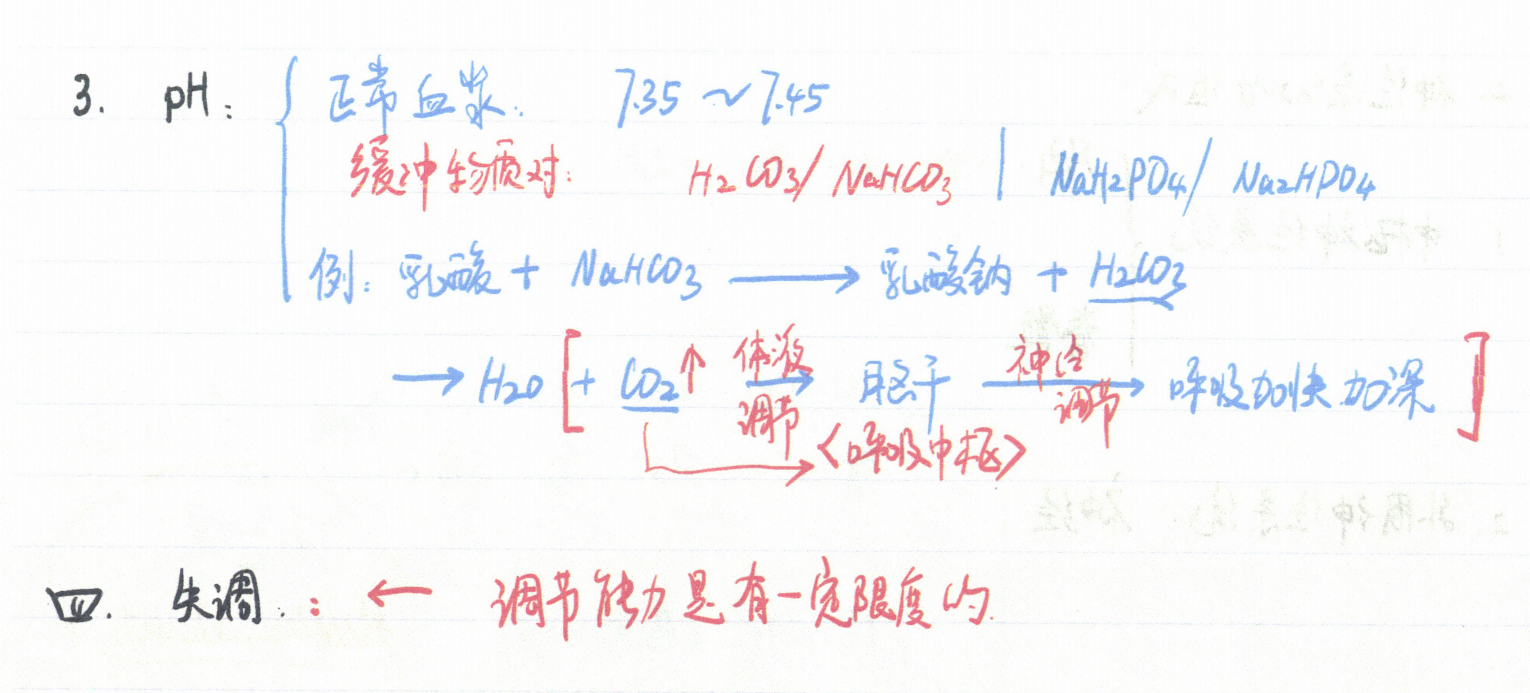 3. pH: 正常血浆: 7.35 ~ 7.45
缓冲物质对: H2CO3/ NaHCO3 | NaH2PO4/ Na2HPO4
例: 乳酸 + NaHCO3 ⟶ 乳酸钠 + H2CO3
⟶ H2O [ + CO2↑ 体液调节 → 脑干 神经调节 → 呼吸加快加深 ]
→ <呼吸中枢>
四. 失调: ← 调节能力是有一定限度的.